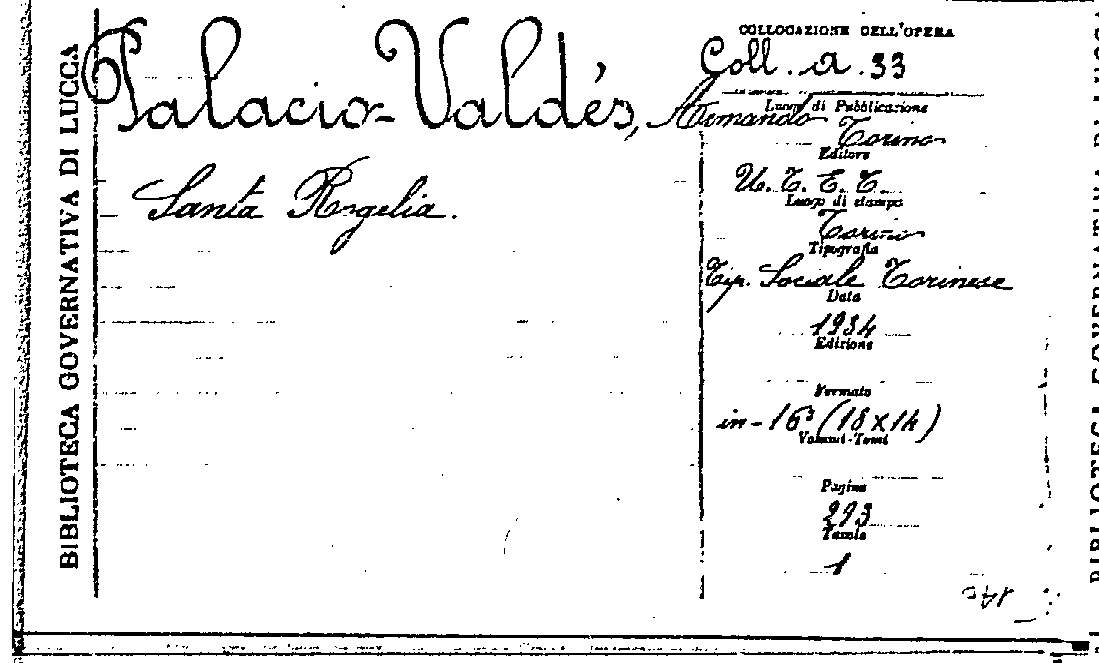 BIBLIOTECA GOVERNATIVA DI LUCCA
Palacio-Valdés, Armando
Santa Rogelia.
COLLOCAZIONE DELL'OPERA
Coll. a. 33
Luogo di Pubblicazione
Torino
Editore
U. T. E. T.
Luogo di stampa
Torino
Tipografia
Tip. Sociale Torinese
Data
1934
Edizione
Formato
in-16° (18x14)
Volumi-Tomi
Pagine
293
Tavole
1